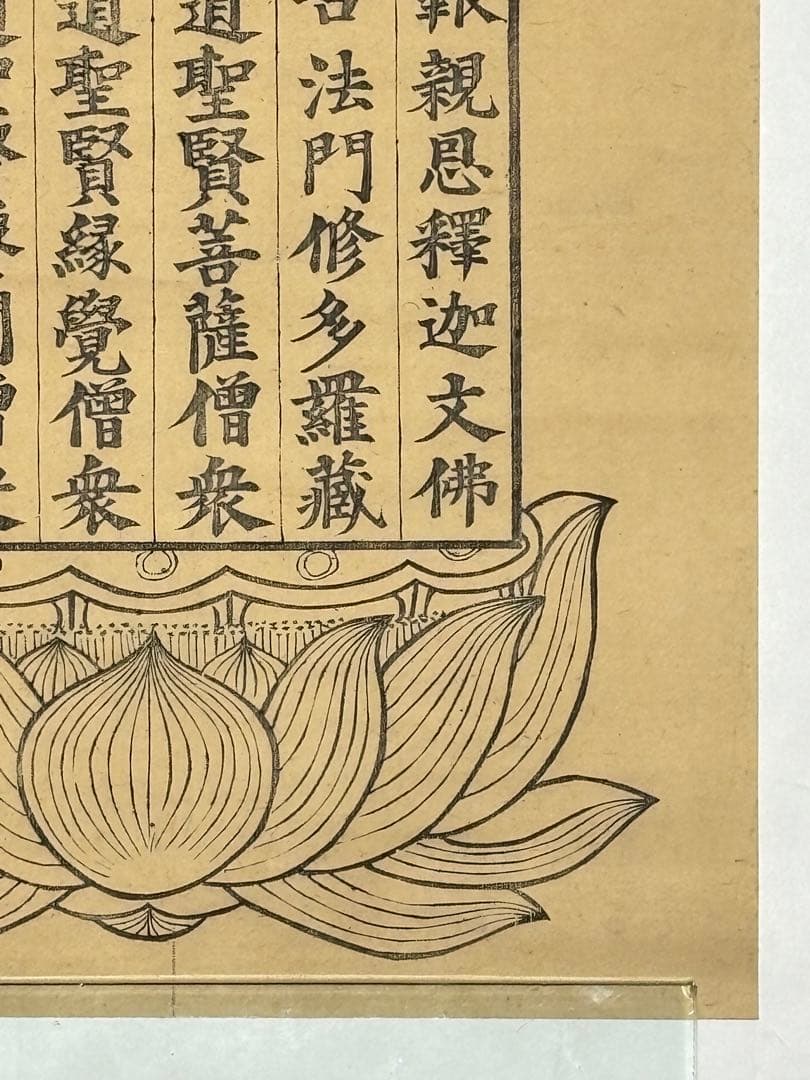 報親恩釋迦文佛
法門修多羅藏
道聖賢菩薩僧衆
道聖賢縁覺僧衆